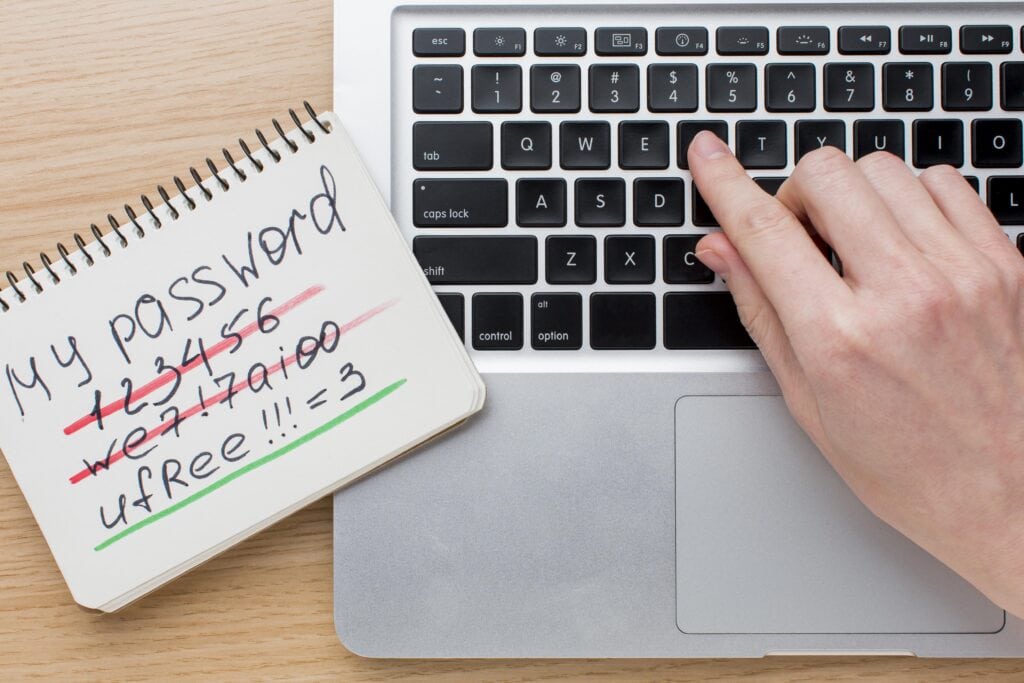 My password
123456
we7!7aioo
ufRee!!!=3
esc F1 F2 F3 F4 F5 F6 F7 F8 F9
~ ` ! 1 @ 2 # 3 $ 4 % 5 ^ 6 & 7 * 8 ( 9
tab Q W E T Y U I O
caps lock A S D L
shift Z X C
alt
control option